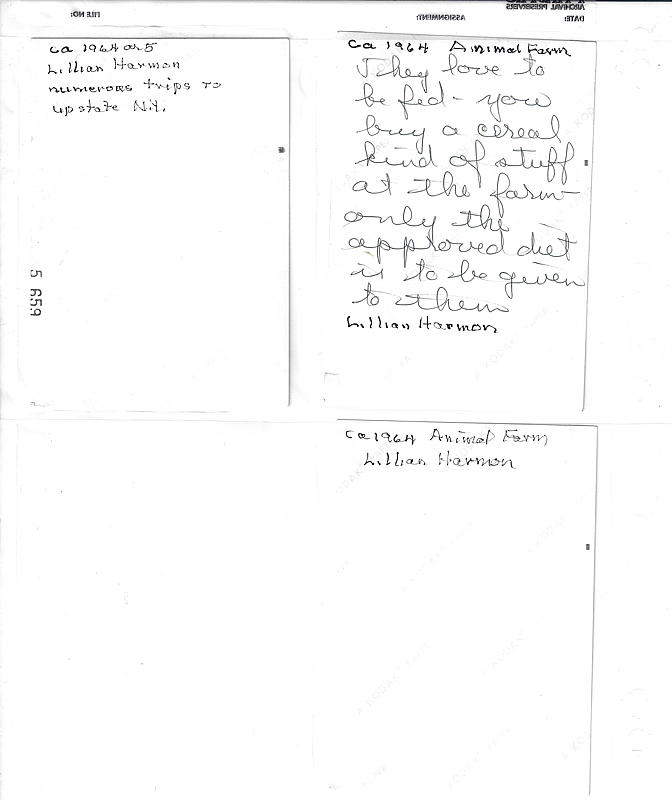 ARCHIVAL PRESERVERS
FILE NO:
ASSIGNMENT:
DATE:
ca 1964 or 5
Lillian Harmon
numerous trips to
upstate N.Y.
5 659
ca 1964 Animal Farm
They love to
be fed - you
buy a cereal
kind of stuff
at the farm -
only the
approved diet
is to be given
to them
Lillian Harmon
ca 1964 Animal Farm
Lillian Harmon
A KODAK PAPER